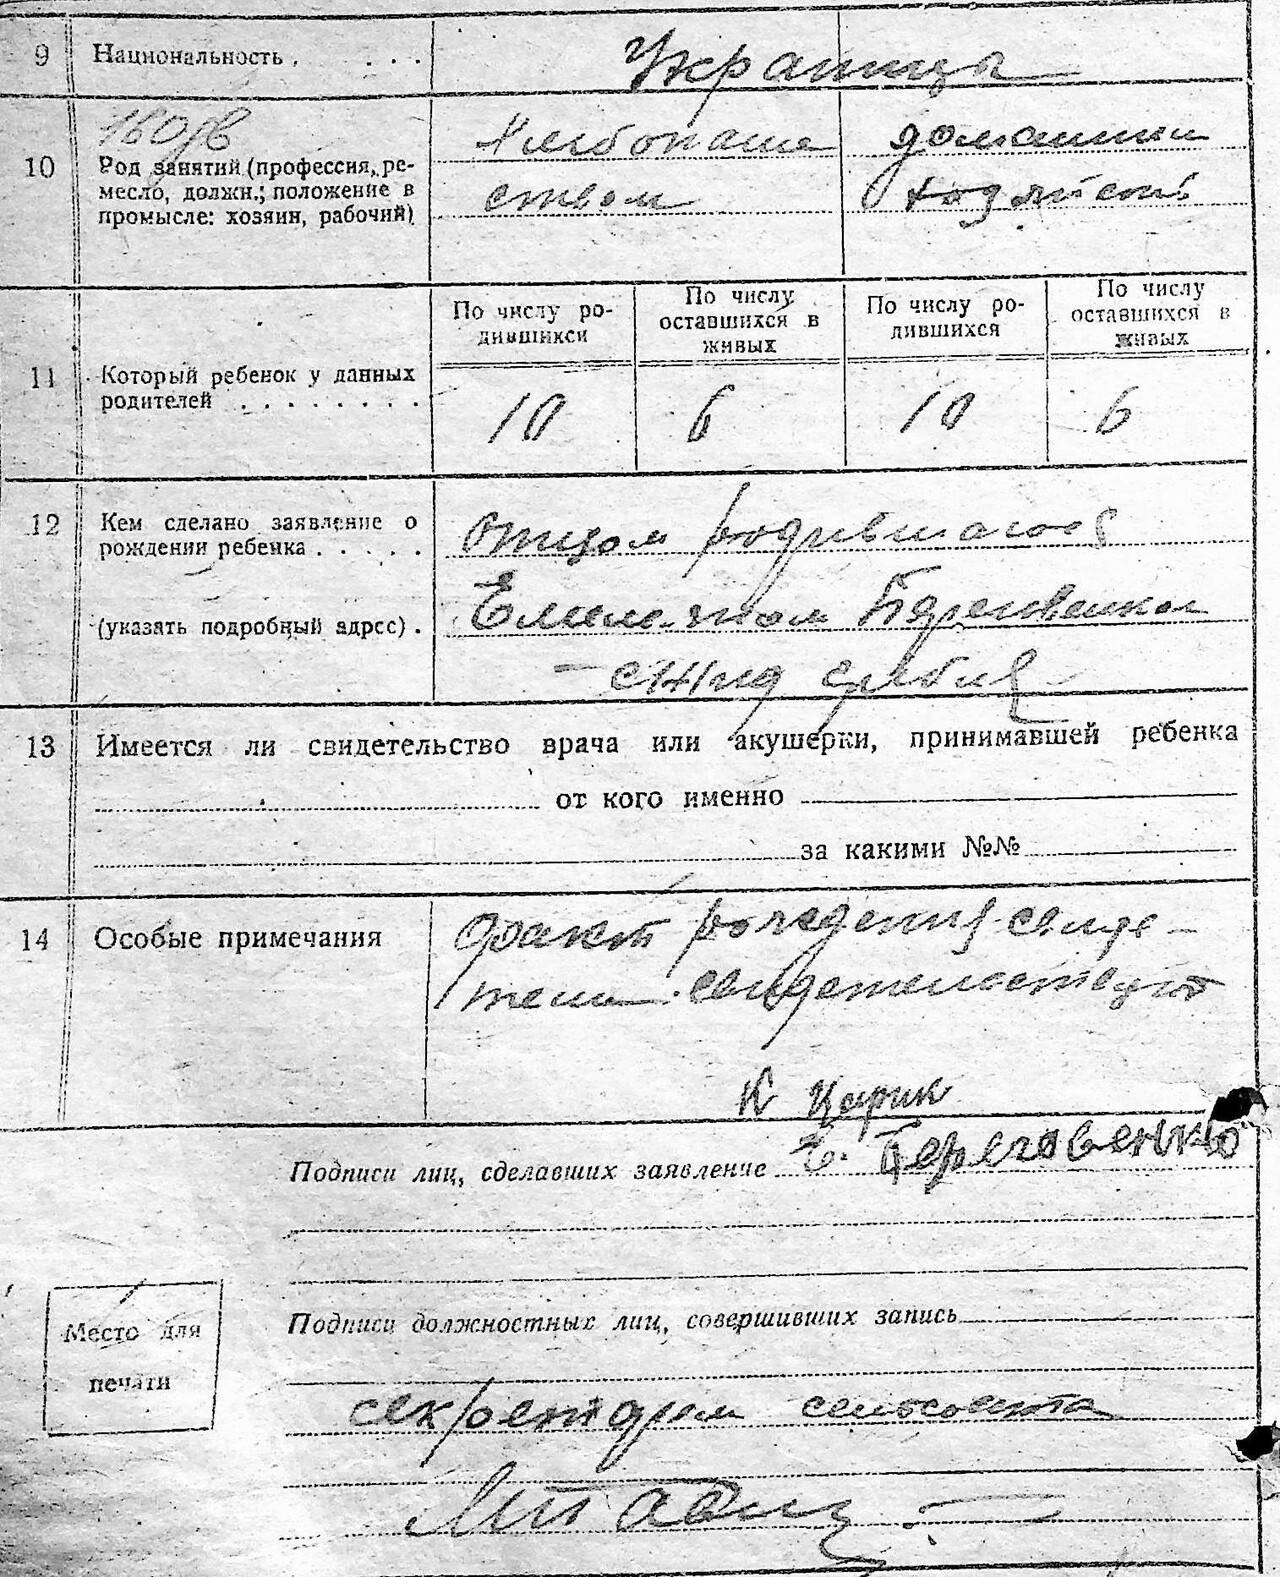 9 Национальность . . . . Украинцы
10 Род занятий (профессия, ре-
месло, должн.; положение в
промысле: хозяин, рабочий)
Хлебопаше
ством
домашнии
хозяйств
11 Который ребенок у данных
родителей . . . . . . . .
По числу ро-
дившихся
По числу
оставшихся в
живых
По числу ро-
дившихся
По числу
оставшихся в
живых
10 6 10 6
12 Кем сделано заявление о
рождении ребенка . . . . .
(указать подробный адрес) .
Отцом родившагося
Береговенком
13 Имеется ли свидетельство врача или акушерки, принимавшей ребенка
от кого именно
за какими №№
14 Особые примечания
Факт рождения свиде-
тели свидетельствуют
К Царик
Подписи лиц, сделавших заявление Е. Береговенко
Место для
печати
Подписи должностных лиц, совершивших запись
секретарем сельсовета